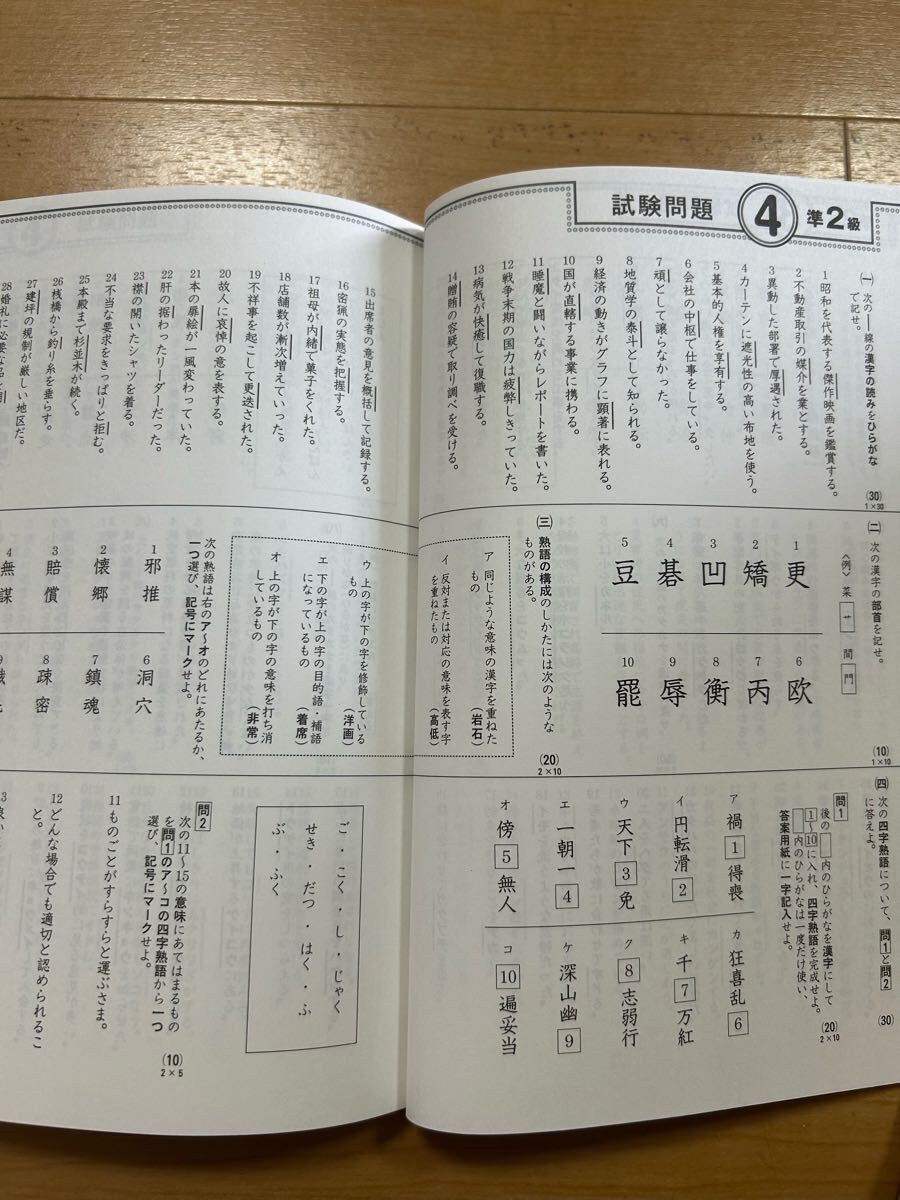 試験問題 4 準2級
(一) 次の――線の漢字の読みをひらがな
で記せ。
(30)
1×30
1 昭和を代表する傑作映画を鑑賞する。
2 不動産取引の媒介を業とする。
3 異動した部署で厚遇された。
4 カーテンに遮光性の高い布地を使う。
5 基本的人権を享有する。
6 会社の中枢で仕事をしている。
7 頑として譲らなかった。
8 地質学の泰斗として知られる。
9 経済の動きがグラフに顕著に表れる。
10 国が直轄する事業に携わる。
11 睡魔と闘いながらレポートを書いた。
12 戦争末期の国力は疲弊しきっていた。
13 病気が快癒して復職する。
14 贈賄の容疑で取り調べを受ける。
15 出席者の意見を概括して記録する。
16 密猟の実態を把握する。
17 祖母が内緒で菓子をくれた。
18 店舗数が漸次増えていった。
19 不祥事を起こして更迭された。
20 故人に哀悼の意を表する。
21 本の扉絵が一風変わっていた。
22 肝の据わったリーダーだった。
23 襟の開いたシャツを着る。
24 不当な要求をきっぱりと拒む。
25 本殿まで杉並木が続く。
26 桟橋から釣り糸を垂らす。
27 建坪の規制が厳しい地区だ。
28 婚礼に必要な品を
(二) 次の漢字の部首を記せ。
(10)
1×10
〈例〉 菜 艹 間 門
1 更
2 矯
3 凹
4 碁
5 豆
6 欧
7 丙
8 衡
9 辱
10 罷
(三) 熟語の構成のしかたには次のような
ものがある。
(20)
2×10
ア 同じような意味の漢字を重ねた
もの (岩石)
イ 反対または対応の意味を表す字
を重ねたもの (高低)
ウ 上の字が下の字を修飾している
もの (洋画)
エ 下の字が上の字の目的語・補語
になっているもの (着席)
オ 上の字が下の字の意味を打ち消
しているもの (非常)
次の熟語は右のア〜オのどれにあたるか、
一つ選び、記号にマークせよ。
1 邪推
2 懐郷
3 賠償
4 無謀
6 洞穴
7 鎮魂
8 疎密
(四) 次の四字熟語について、問1と問2
に答えよ。
(30)
問1
後の 内のひらがなを漢字にして
1〜10に入れ、四字熟語を完成せよ。
内のひらがなは一度だけ使い、
答案用紙に一字記入せよ。
(20)
2×10
ア 禍1得喪
イ 円転滑2
ウ 天下3免
エ 一朝一4
オ 傍5無人
カ 狂喜乱6
キ 千7万紅
ク 8志弱行
ケ 深山幽9
コ 10遍妥当
ご・こく・し・じゃく
せき・だつ・はく・ふ
ぶ・ふく
問2
次の11〜15の意味にあてはまるもの
を問1のア〜コの四字熟語から一つ
選び、記号にマークせよ。
(10)
2×5
11 ものごとがすらすらと運ぶさま。
12 どんな場合でも適切と認められるこ
と。